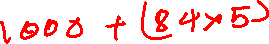 1000 + (84x5)